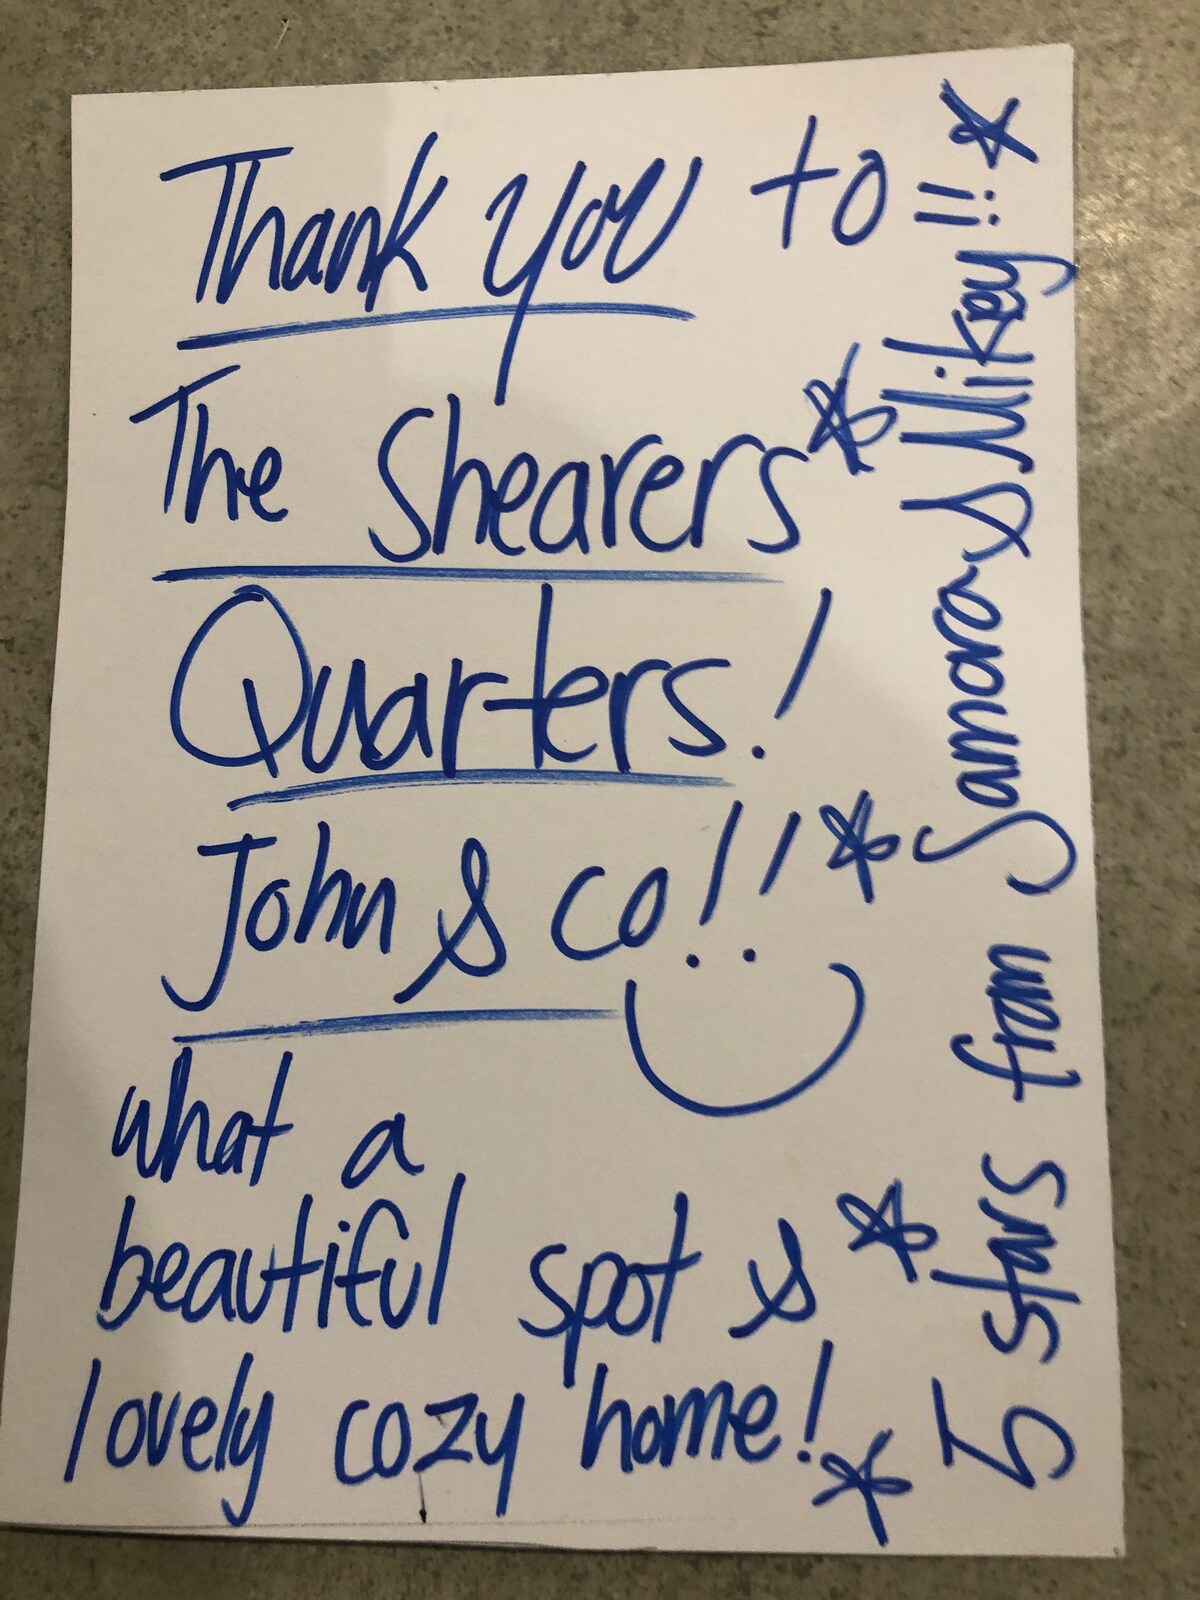 Thank you to
The Shearers
Quarters!
John & co!!
what a
beautiful spot &
lovely cozy home!
5 stars from Samara & Mikey!!